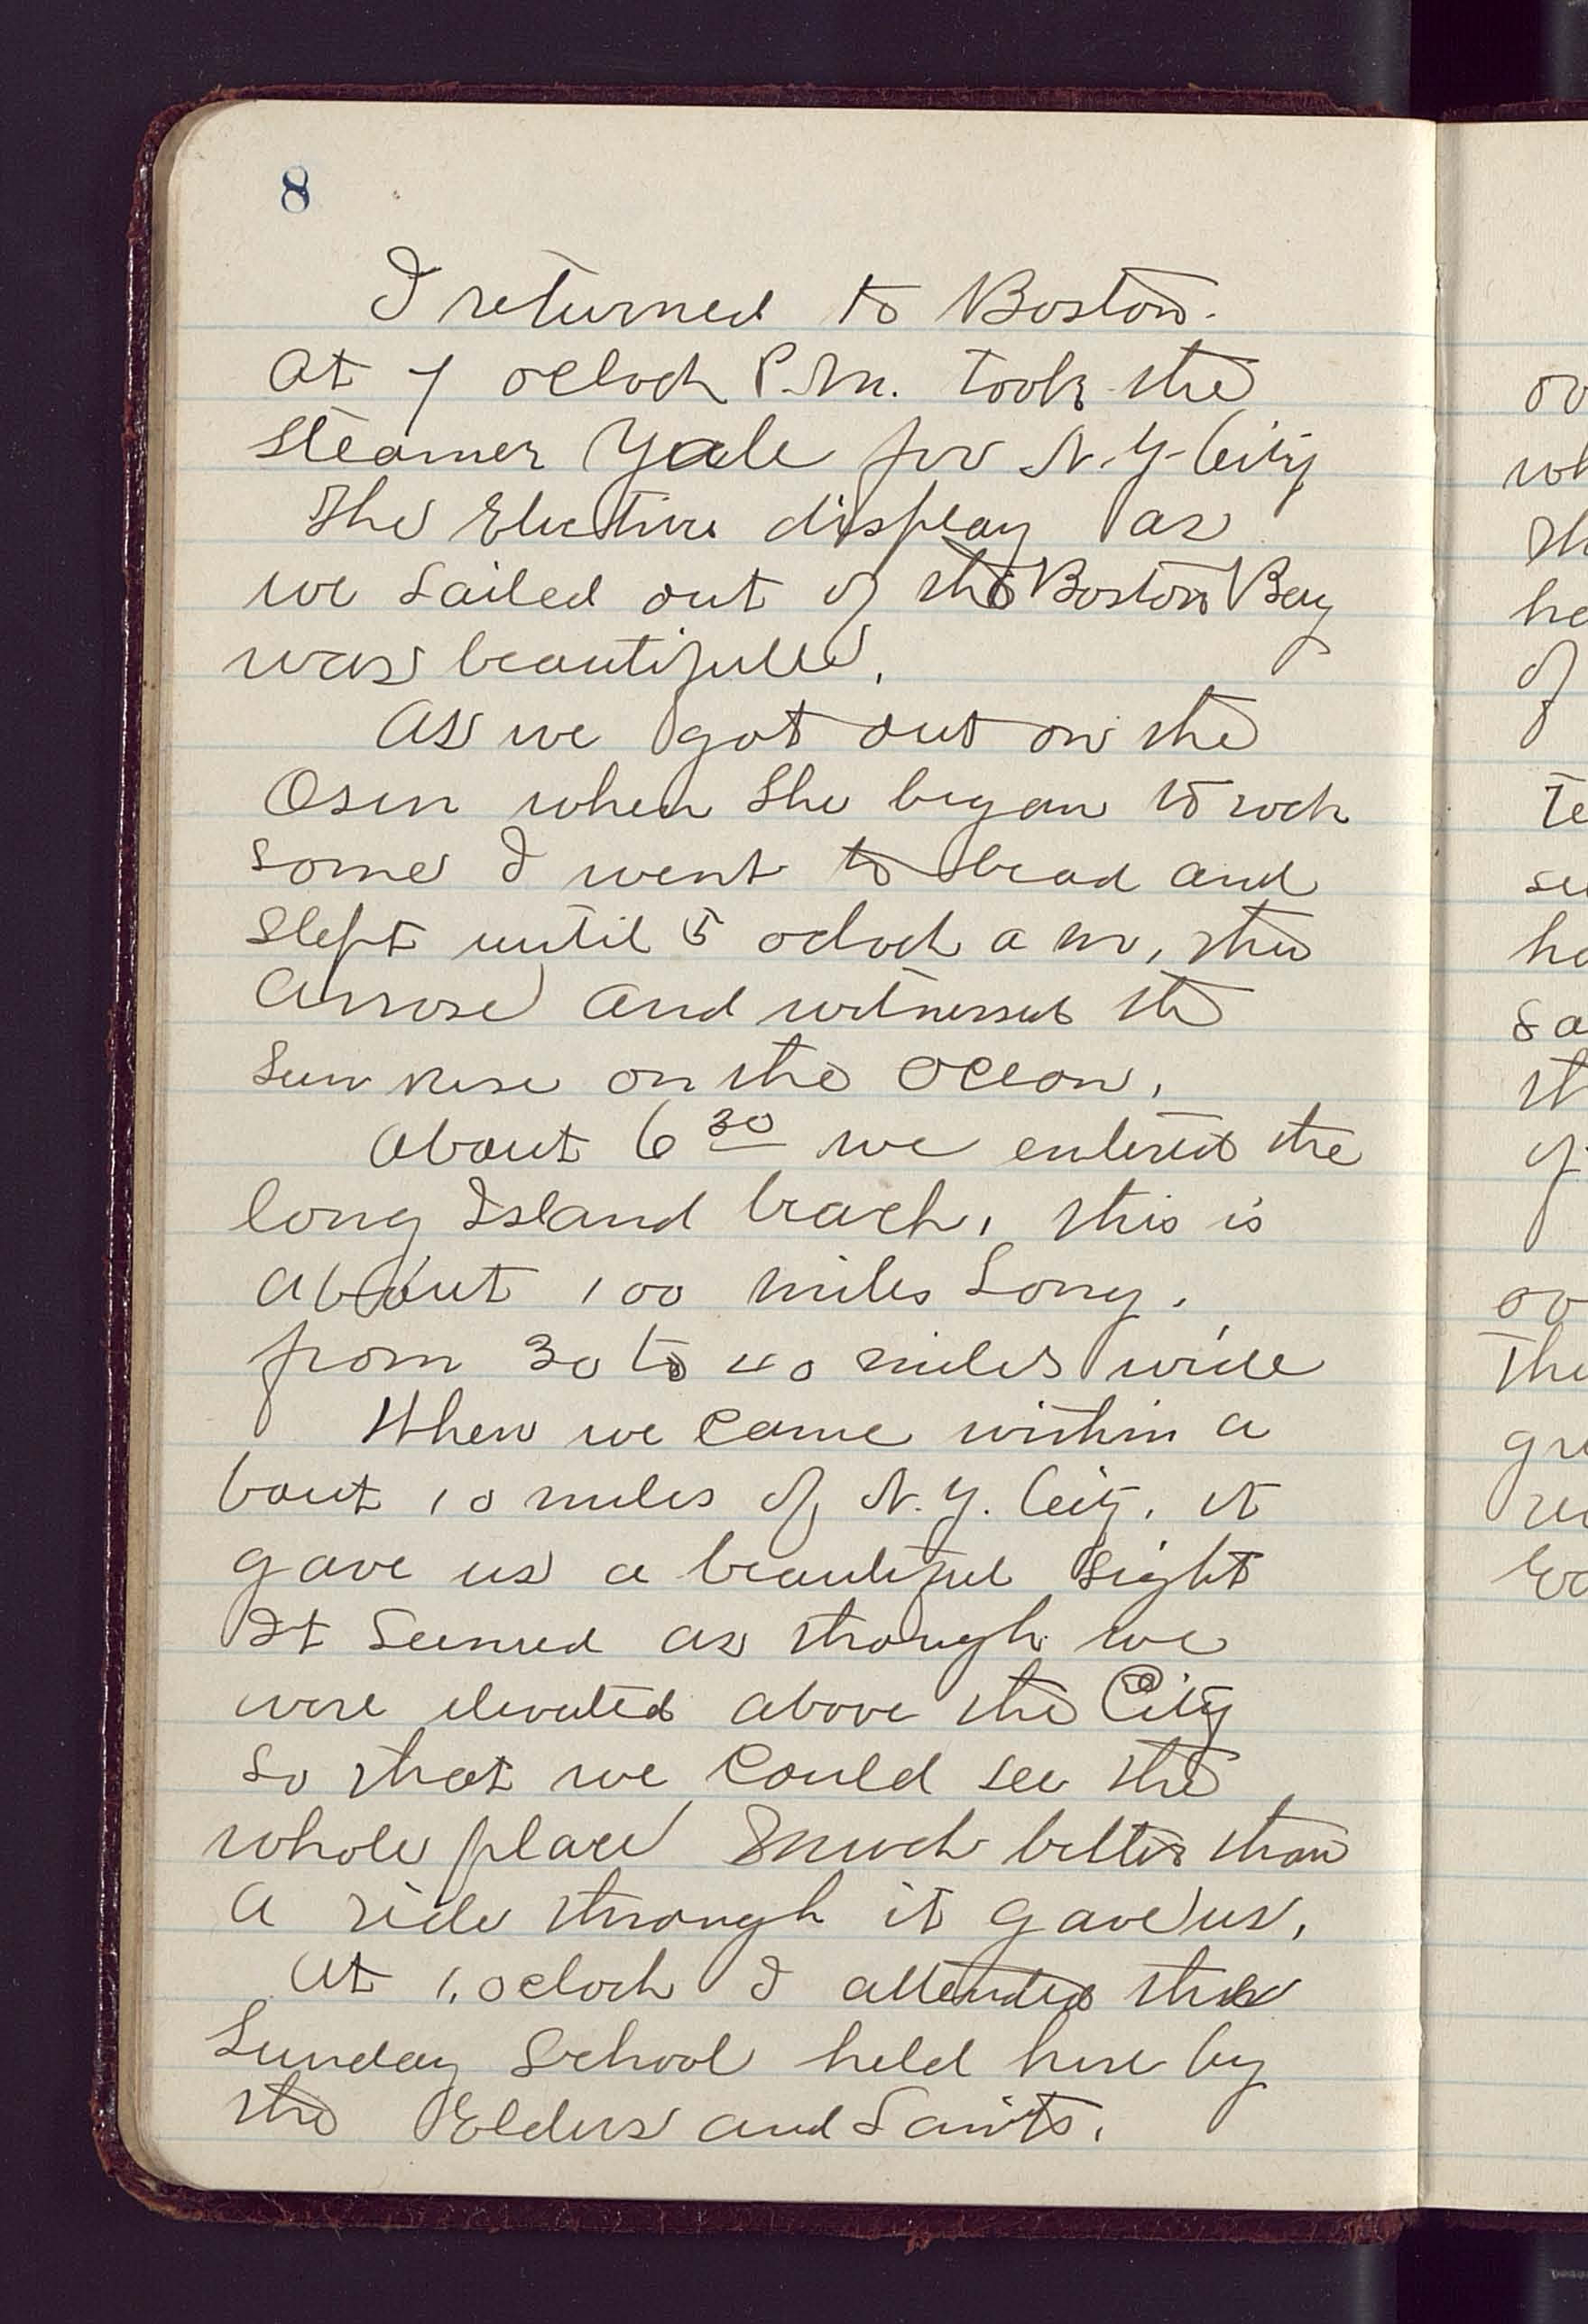 8
I returned to Boston.
At 7 oclock P.M. took the
steamer Yale for N.Y. City
The Electric display as
we sailed out of the Boston Bay
was beautifull.
As we got out on the
Osen when she began to rock
some I went to bead and
slept until 5 oclock a m, then
arrose and witnessed the
sun rise on the ocean.
About 6 30 we entered the
long Island beach, this is
about 100 miles Long.
from 30 to 40 miles wide
When we came within a
bout 10 miles of N.Y. City, it
gave us a beautiful sight
It seemed as though we
were elevated above the City
so that we could see the
whole place Much better than
a ride through it gave us.
At 1,oclock I attended the
Sunday School held here by
the Elders and Saints.
oo
wh
ha
of
Te
ha
sa
oo
The